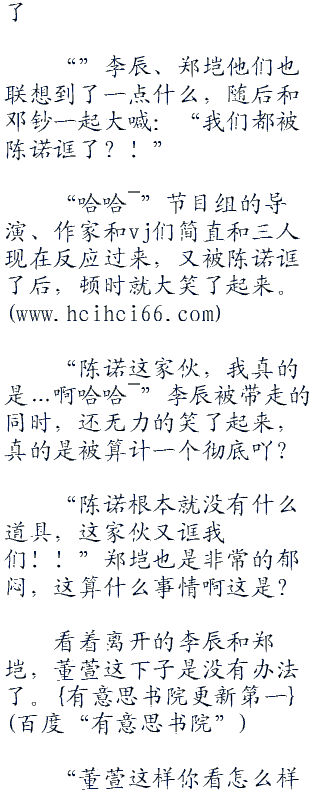 了
“”李辰、郑垲他们也
联想到了一点什么，随后和
邓钞一起大喊：“我们都被
陈诺诓了？！”
“哈哈¯”节目组的导
演、作家和vj们简直和三人
现在反应过来，又被陈诺诓
了后，顿时就大笑了起来。
(www.hcihci66.com)
“陈诺这家伙，我真的
是…啊哈哈¯”李辰被带走的
同时，还无力的笑了起来，
真的是被算计一个彻底吖？
“陈诺根本就没有什么
道具，这家伙又诓我
们！！”郑垲也是非常的郁
闷，这算什么事情啊这是？
看着离开的李辰和郑
垲，董萱这下子是没有办法
了。{有意思书院更新第一}
(百度“有意思书院”)
“董萱这样你看怎么样